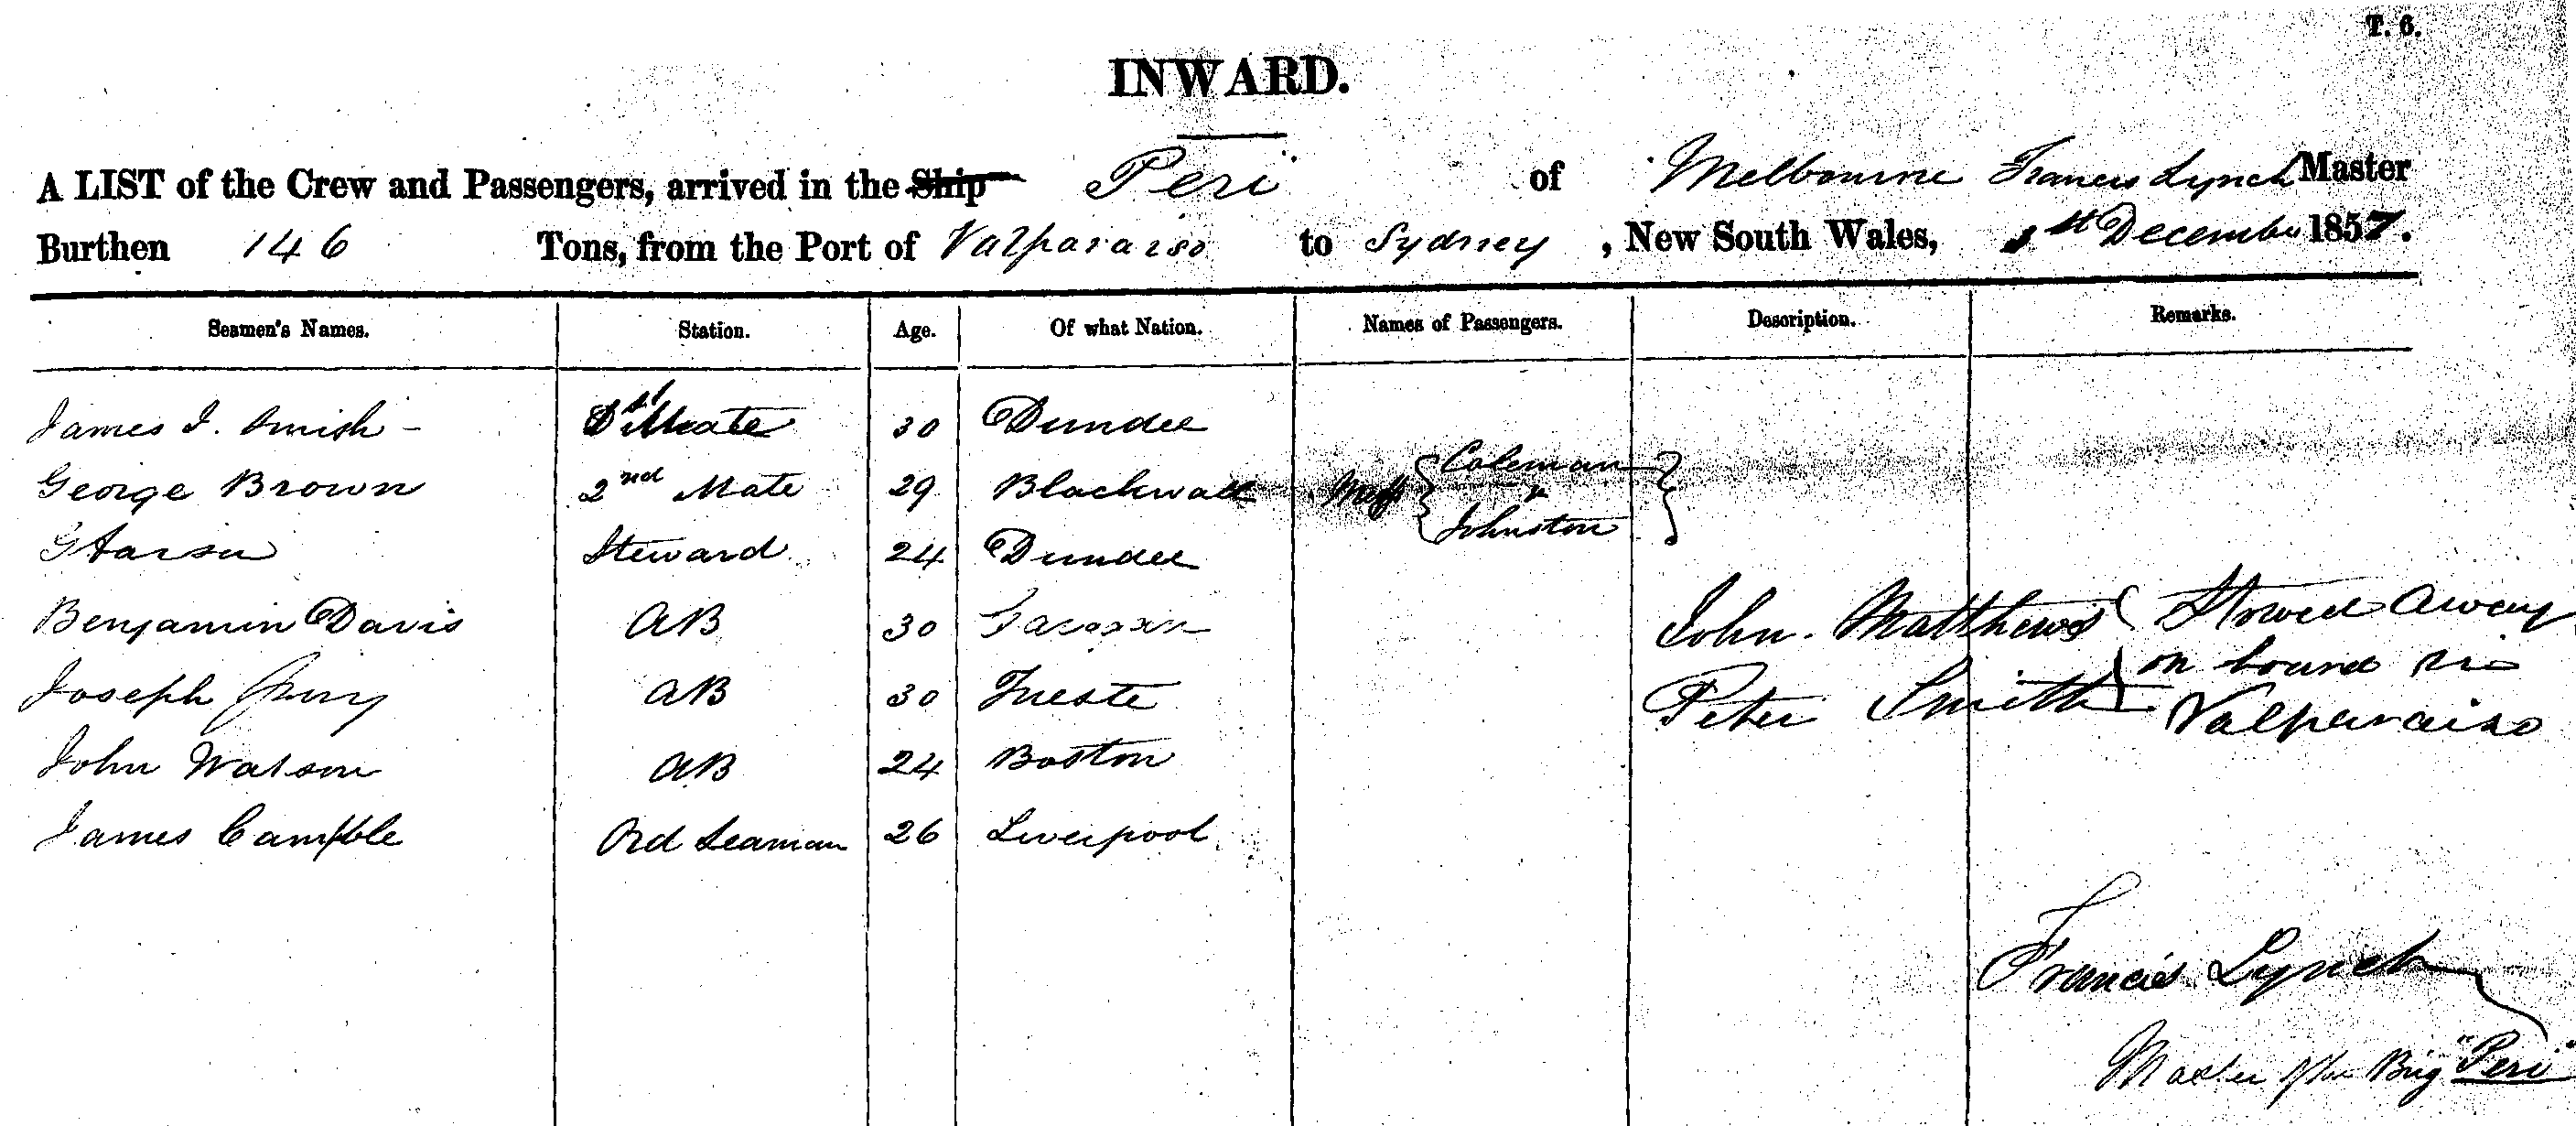 T. 6.
INWARD.
A LIST of the Crew and Passengers, arrived in the Ship Peri of Melbourne Francis Lynch Master
Burthen 146 Tons, from the Port of Valparaiso to Sydney, New South Wales, 1st December 1857.
Seamen's Names. Station. Age. Of what Nation. Names of Passengers. Description. Remarks.
James I. 1st Mate 30 Dundee
George Brown 2nd Mate 29 Blackwall Messrs { Coleman & Johnston }
Steward 24 Dundee
Benjamin Davis AB 30
Joseph AB 30 Trieste
John Watson AB 24 Boston
James Campble Ord Seaman 26 Liverpool
John Matthews
Peter Smith
Stowed away
on board in
Valparaiso
Francis Lynch
Master of the Brig "Peri"